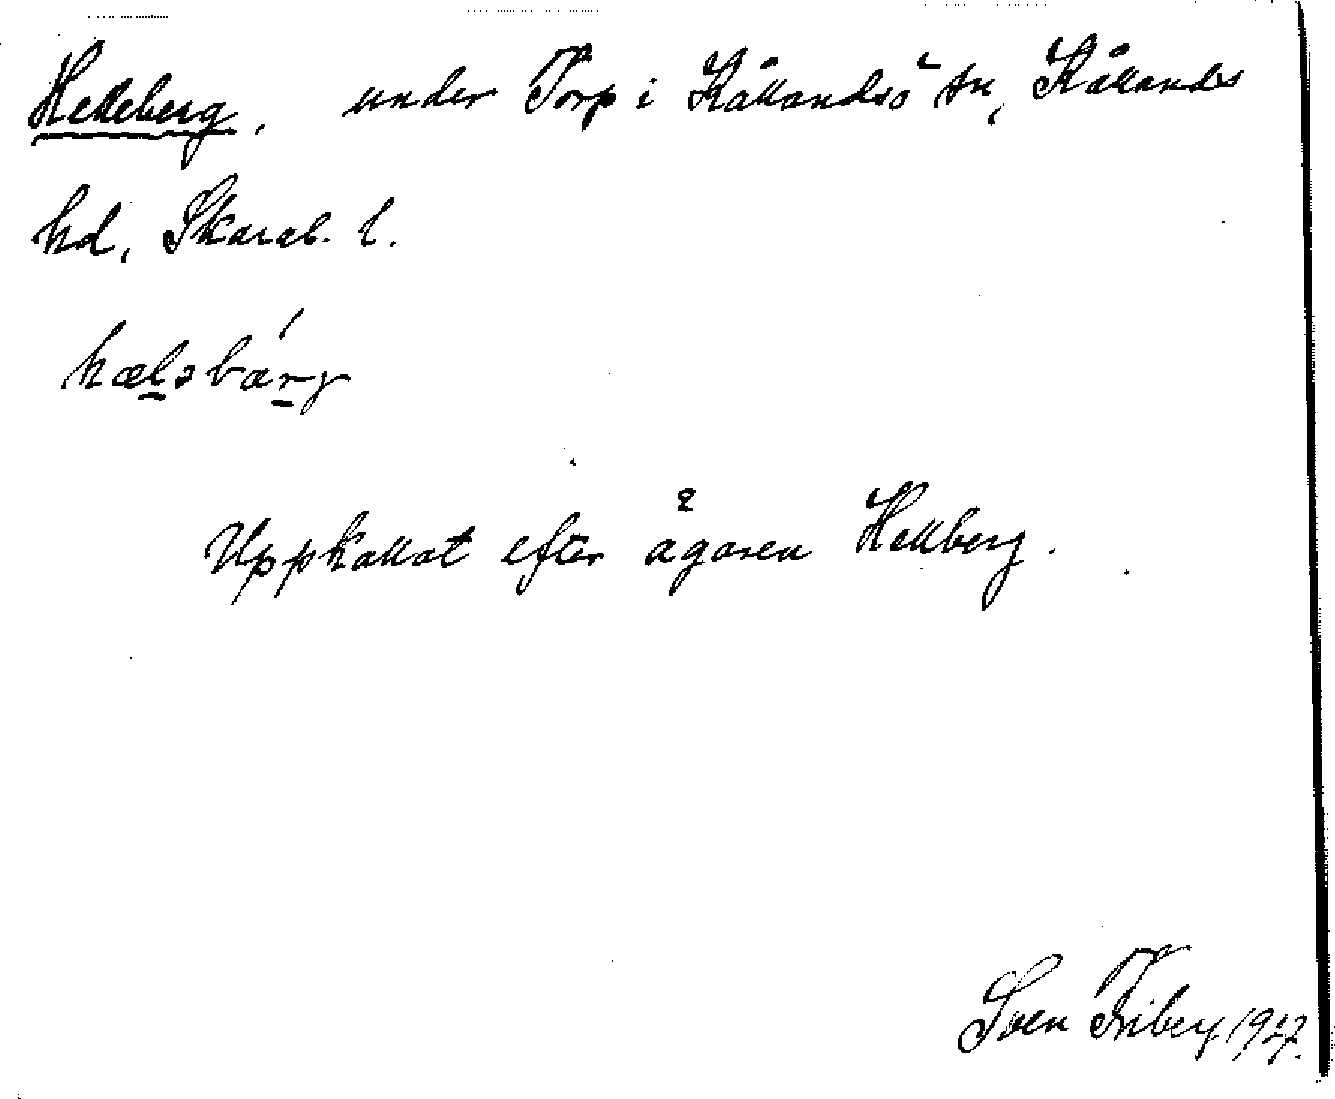 Helleberg, under Torp i Kållandsö sn, Kållands
hd, Skarab. l.
hælsbærg
Uppkallat efter ägaren Hellberg.
Sven Friberg 1927.